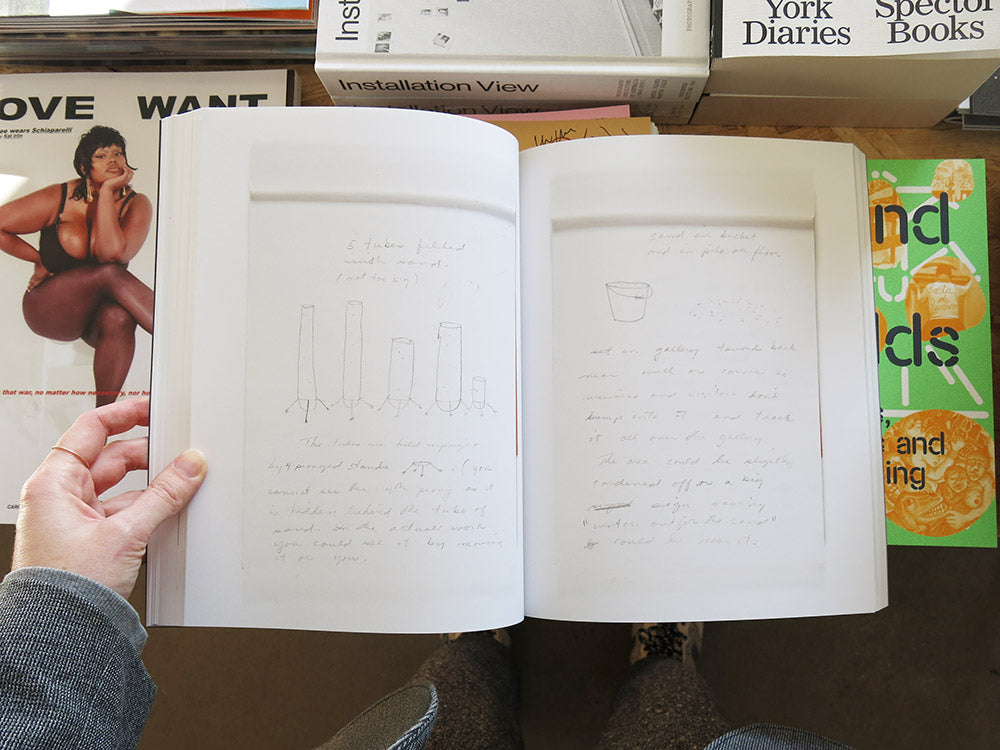 York
Diaries
Spector
Books
Inst
Installation View
Installation View
PHOTOGRAPH
OVE WANT
ee wears Schiaparelli
that war, no matter how necessary, nor ho
5 tubes filled
with sand.
(not too big)
The tubes are held upright
by 4 pronged stands . (you
cannot see the 4th prong as it
is hidden behind the tube of
sand. In the actual work
you could see it by moving
it or you.
sand in bucket
and in pile on floor
set in gallery towards back
near wall or corner so
viewers and visitors don't
bump into it and track
it all over the gallery.
The area could be slightly
cordoned off or a big
sign warning
"watch out for the sand"
could be near it.
nd
lds
and
ing